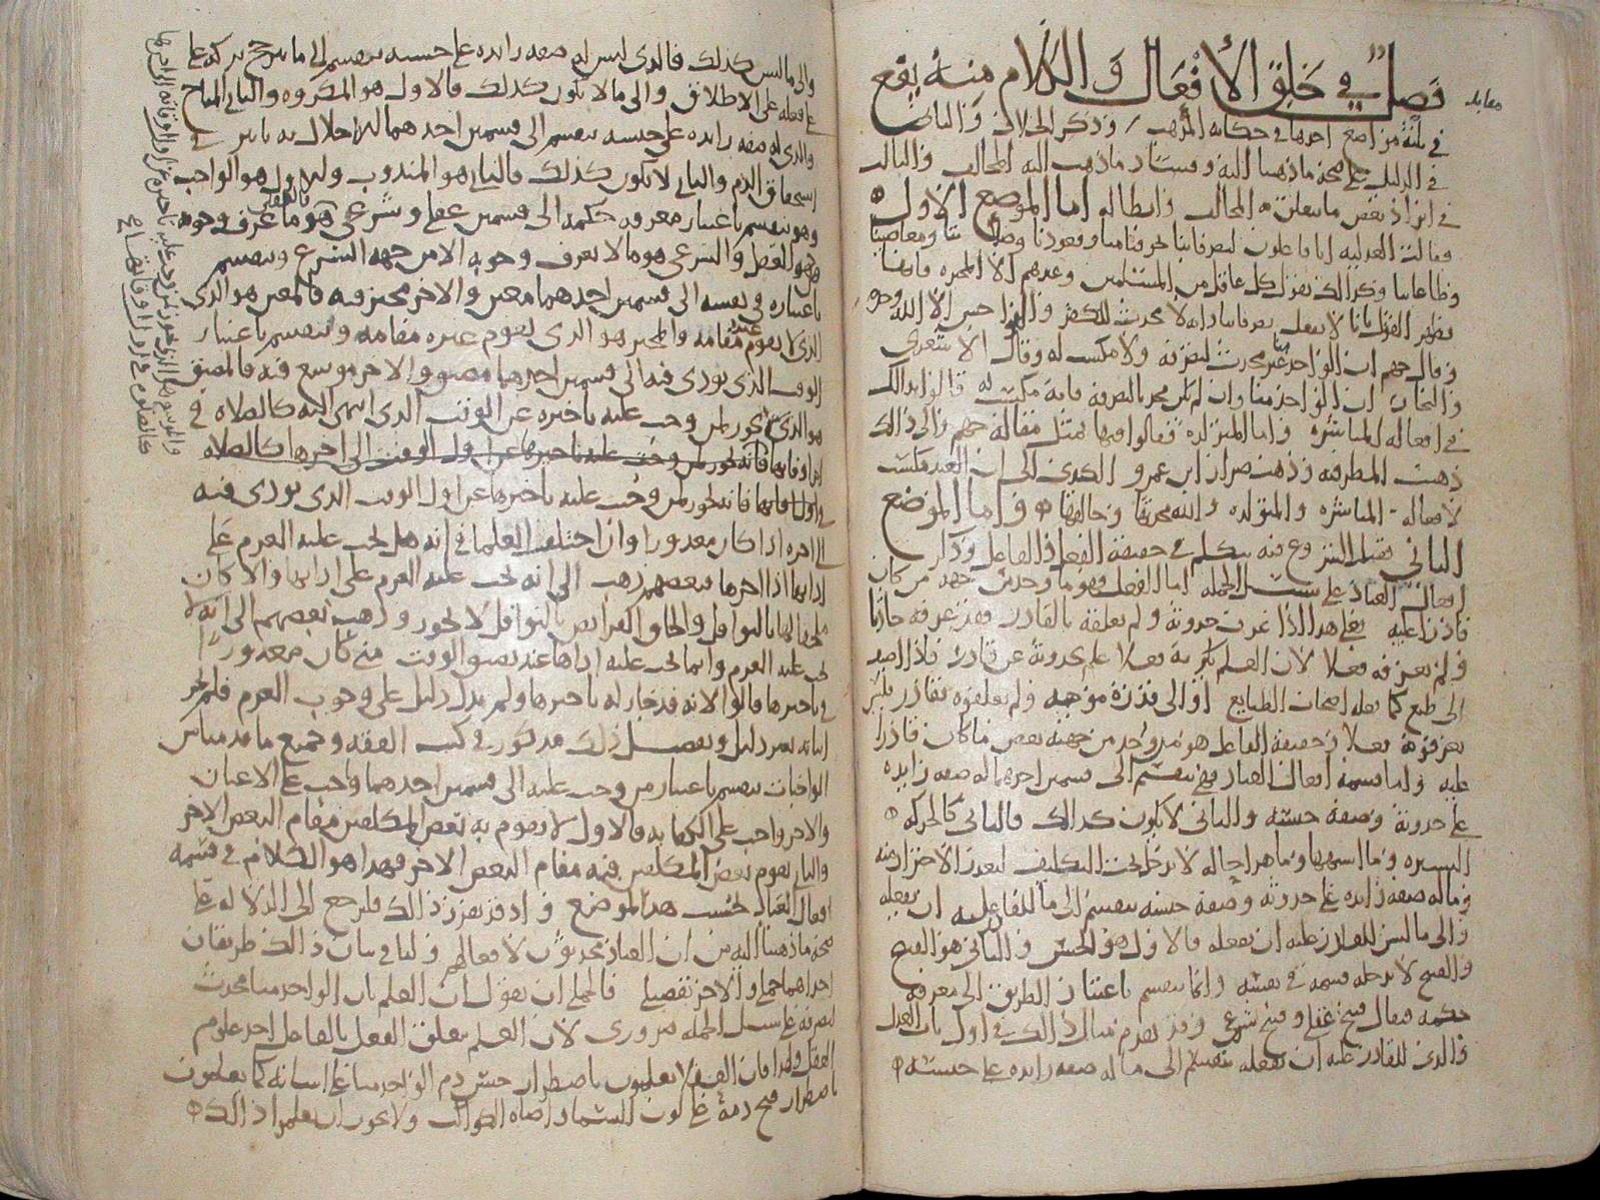 فصل في خلق الأفعال والكلام منه يقع
في ثلثة مواضع احدها في حكاية المذهب وذكر الخلاف والثاني
في الدليل على صحة ما ذهبنا اليه وفساد ما ذهب اليه المخالف والثالث
في ايراد بعض ما يتعلق به المخالف وابطاله اما الموضع الاول
فقالت العدلية انا فاعلون لتصرفاتنا نحو قيامنا وقعودنا ومعاصينا
وطاعاتنا وكذلك نقول كل عاقل من المسلمين وغيرهم الا المجبره فانها
تظهر القول بانا لا نفعل تصرفاتنا وانه لا محدث للكفر
وقال جهم ان الواحد منا غير محدث لتصرفه ولا مكتسب له وقال الاشعري
والنجار ان الواحد منا وان لم يكن محدثا لتصرفه فانه مكتسب له قالوا بذلك
في افعاله المباشره واما المتولده فقالوا فيها بمثل مقالة جهم والى ذلك
ذهبت المطرفيه وذهب ضرار ابن عمرو الكوفي الى ان العبد مكتسب
لافعاله المباشره والمتولده والله محدثها وخالقها واما الموضع
الثاني فقبل الشروع فيه نتكلم في حقيقة الفعل والفاعل وذكر
افعال العباد على سبيل الجمله اما الفعل فهو ما وجد من جهة من كان
قادرا عليه فعلى هذا اذا عرفت حدوثه ولم تعلقه بالقادر فقد عرفته حادثا
ولم تعرفه فعلا لان العلم بكونه فعلا علم بحدوثه عن قادر
الى طبع كما يقوله اصحاب الطبايع او الى قدرة موجبه ولم يعلقوه بقادر فلم
يعرفوه فعلا وحقيقة الفاعل هو من وجد من جهته بعض ما كان قادرا
عليه واما قسمة افعال العباد فهي تنقسم الى قسمين احدهما له صفه زايده
على حدوثه وصفة جنسه والثاني لا يكون كذلك فالثاني كالحركه
اليسيره وما اشبهها وما هذا حاله لا يدخل تحت التكليف لتعذر الاحتراز منه
وما له صفه زايده على حدوثه وصفة جنسه ينقسم الى ما للقادر عليه ان يفعله
والى ما ليس للقادر عليه ان يفعله فالاول هو الحسن والثاني هو القبيح
والقبيح لا يدخله قسمه في نفسه وانما ينقسم باعتبار الطريق الى معرفة
حكمه فيقال قبيح عقلي وقبيح شرعي وقد تقدم مثال ذلك في اول باب العدل
والذي للقادر عليه ان يفعله ينقسم الى ما له صفه زايده على حسنه
والى ما ليس كذلك فالذي ليس له صفه زايده على حسنه ينقسم الى ما يترجح تركه على
فعله على الاطلاق والى ما لا يكون كذلك فالاول هو المكروه والثاني المباح
والذي له صفه زايده على حسنه ينقسم الى قسمين احدهما للاخلال به تاثير في
استحقاق الذم والثاني لا يكون كذلك فالثاني هو المندوب والاول هو الواجب
وهو ينقسم باعتبار معرفة حكمه الى قسمين عقلي وشرعي فالعقلي هو ما عرف وجوبه
بالعقل والشرعي هو ما لا يعرف وجوبه الا من جهة الشرع وينقسم
باعتباره في نفسه الى قسمين احدهما معين والاخر مخير فيه فالمعين هو الذي
لا يقوم غيره مقامه والمخير هو الذي يقوم غيره مقامه وينقسم باعتبار
الوقت الذي يودى فيه الى قسمين احدهما مضيق والاخر موسع فيه فالمضيق
هو الذي لا يجوز لمن وجب عليه تاخيره عن الوقت الذي انتهى اليه كالصلاه في
اخر اوقاتها فانه لا يجوز لمن وجبت عليه تاخيرها عن اول الوقت الى اخرها كالصلاه
في اول وقتها فانه يجوز لمن وجبت عليه تاخيرها عن اول الوقت الذي يودى فيه
الى اخره اذا كان معذورا وان اختلف العلما في انه هل يجب عليه العزم على
ادائها اذا اخرها فبعضهم ذهب الى انه يجب عليه العزم على ادائها والا كان
ملحقا لها بالنوافل والحاق الفرايض بالنوافل لا يجوز وذهب بعضهم الى انه لا
يجب عليه العزم وانما يجب عليه اداها عند تضيق الوقت متى كان معذورا
في تاخيرها قالوا لانه قد جاز له تاخيرها ولم يدل دليل على وجوب العزم فلم يجز
اثباته بغير دليل وتفصيل ذلك مذكور في كتب الفقه وجميع ما قدمناه من
الواجبات ينقسم باعتبار من وجب عليه الى قسمين احدهما واجب على الاعيان
والاخر واجب على الكفايه فالاول لا يقوم به بعض المكلفين مقام البعض الاخر
والثاني يقوم بعض المكلفين فيه مقام البعض الاخر فهذا هو الكلام في قسمة
افعال العباد بحسب هذا الموضع واذ قد تقرر ذلك فلنرجع الى الدلاله على
صحة ما ذهبنا اليه من ان العباد محدثون لافعالهم ولنا في بيان ذلك طريقان
احداهما جملي والاخر تفصيلي فالجملي ان نقول ان العلم بان الواحد منا محدث
لتصرفه على سبيل الجمله ضروري لان العلم بتعلق الفعل بالفاعل احد علوم
العقل ولهذا فان العقلا يعلمون باضطرار حسن ذم الواحد منا على اساته كما يعلمون
باضطرار قبح ذمه على كون السماء واضاه الكواكب ولا يجوز ان يعلموا ذلك